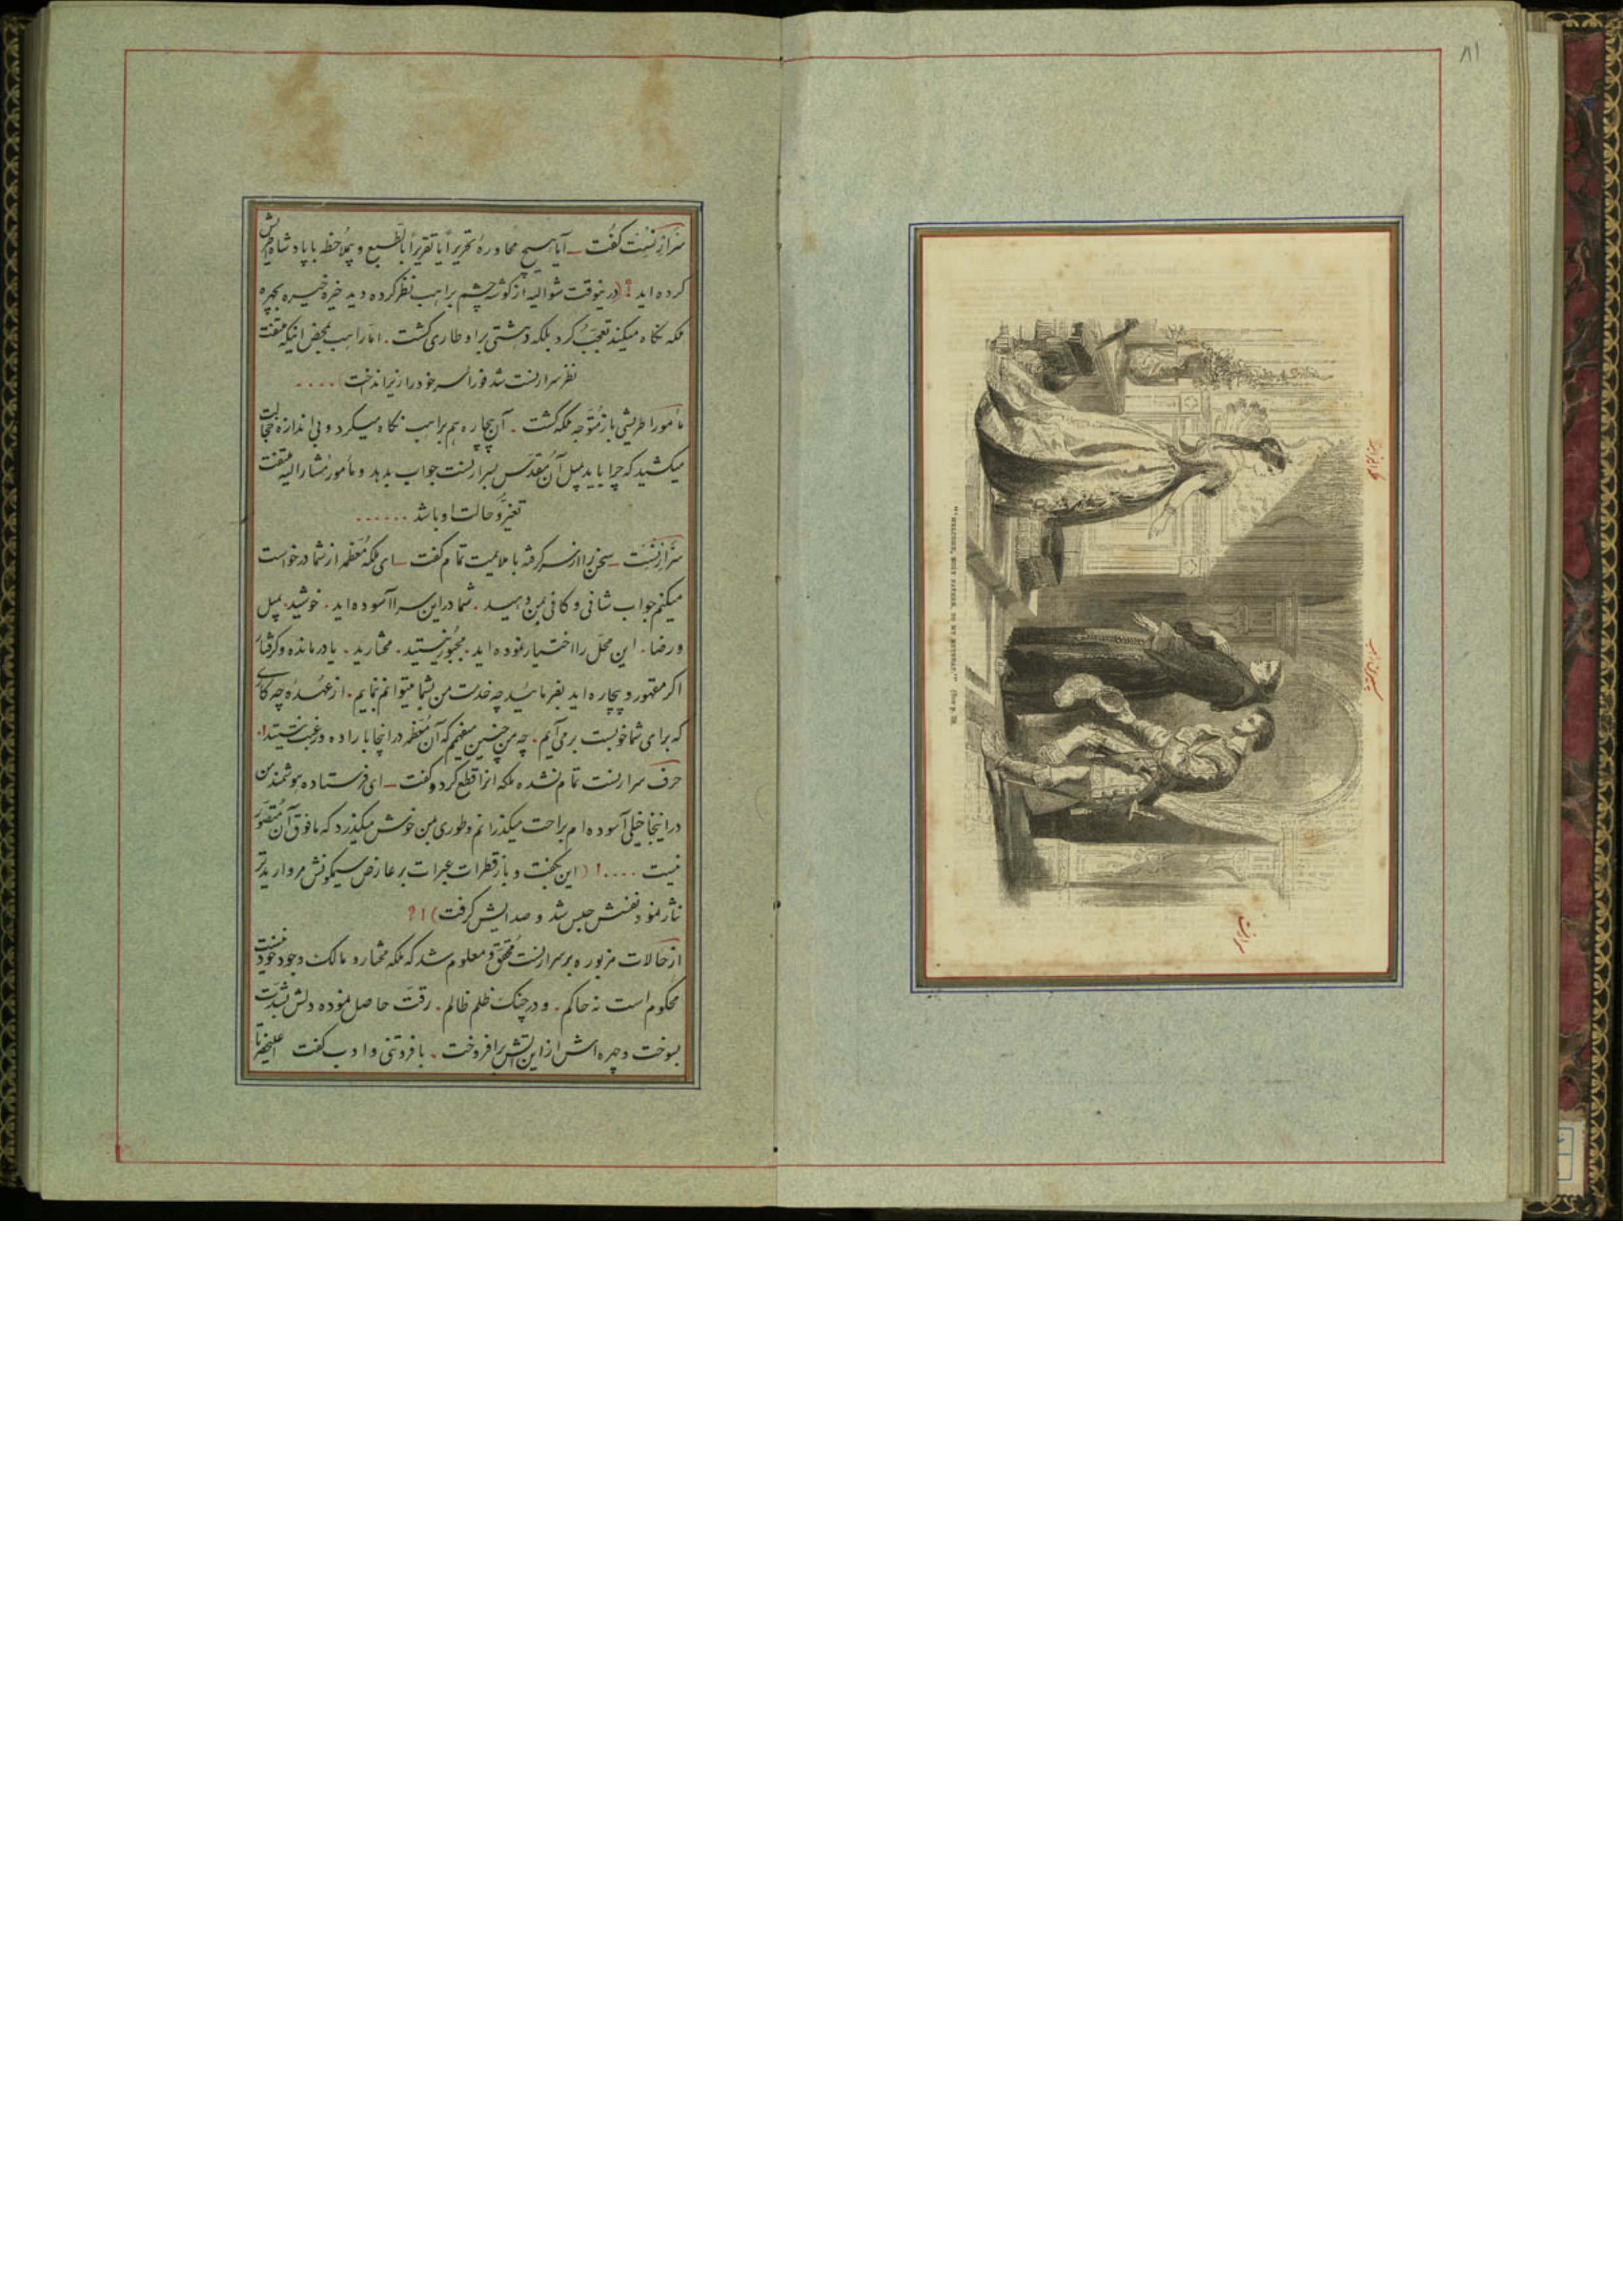 ۸۱
"WELCOME, HOLY FATHER, TO MY
سرارنست گفت ــ آیا هیچ محاوره تحریراً یا تقریراً بالطبع و بملاحظه با پادشاه اطریش
کرده اید ؟ (درینوقت شوالیه از گوشه چشم براهب نظر کرده دید خیره خیره بچهره
ملکه نگاه میکند تعجب کرد بلکه دهشتی براو طاری گشت . اما راهب بمحض اینکه ملتفت
نظر سرارنست شد فوراً سر خود را زیر انداخت) ....
مأمور اطریشی باز متوجه ملکه گشت . آن بیچاره هم براهب نگاه میکرد و بی اندازه خجالت
میکشید که چرا باید مثل آن مقدس بسرارنست جواب بدهد و مأمور مشارالیه ملتفت
تغیر و حالت او باشد ......
سرارنست ــ سخن را از سر گرفته با ملایمت تمام گفت ــ ای ملکه معظمه از شما درخواست
میکنم جواب شافی و کافی بمن دهید . شما در این سرا آسوده اید . خوشید . بمیل
و رضا . این محل را اختیار نموده اید . مجبور نیستید . مختارید . یا درمانده و گرفتار
اگر مقهور و بیچاره اید بفرمائید چه خدمت من بشما میتوانم بنمایم . از عهده چه کاری
که برای شما خوبست برمی آیم . چه من چنین میفهمم که آن معظمه در اینجا باراده و رغبت نیستید .
حرف سرارنست تمام نشده ملکه آنرا قطع کرد و گفت ــ ای فرستاده هوشمند من
در اینجا خیلی آسوده ام براحت میگذرانم و طوری بمن خوش میگذرد که مافوق آن متصور
نیست ....! (این بگفت و باز قطرات عبرات بر عارض سیمگونش مروارید تر
نثار نمود نفسش حبس شد و صدایش گرفت) !؟
از حالات مزبوره بر سرارنست محقق و معلوم شد که ملکه مختار و مالک وجود خود نیست
محکوم است نه حاکم . و در چنگ ظلم ظالم . رقت حاصل نموده دلش بشدت
بسوخت و چهره اش از این آتش برافروخت . با فروتنی و ادب گفت اعلیحضرتا